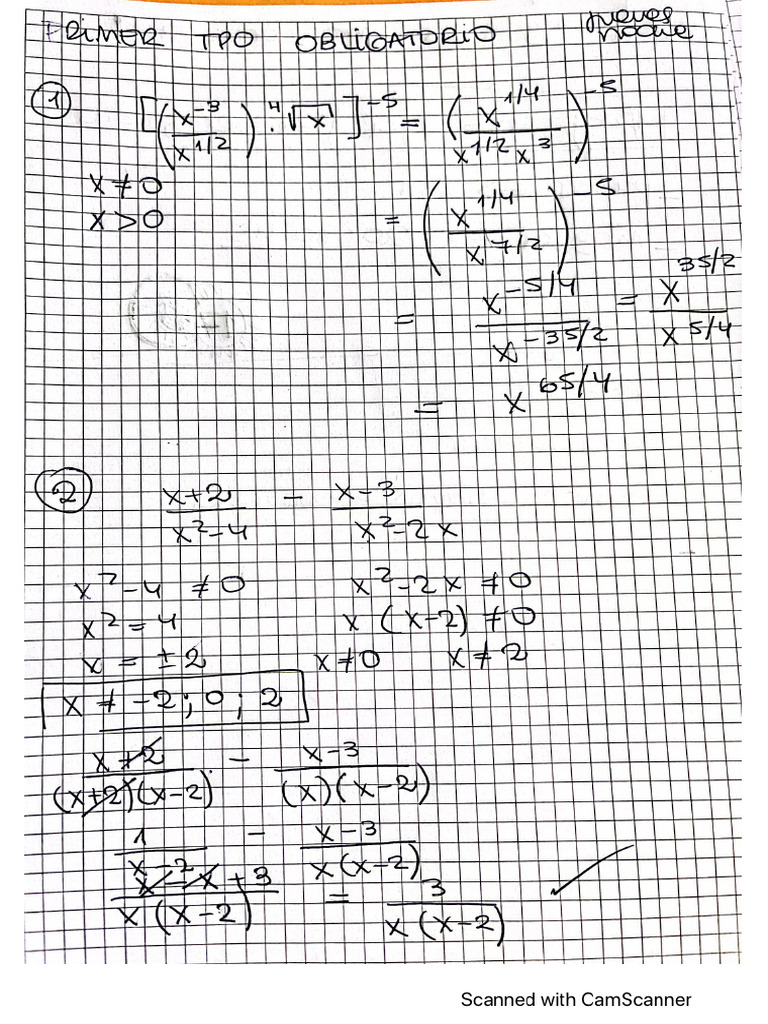 PRIMER TPO OBLIGATORIO
jueves
noche
1
[(x^-3 / x^1/2) · ⁴√x]^-5 = (x^1/4 / x^1/2 x^3)^-5
x ≠ 0
x > 0
= (x^1/4 / x^7/2)^-5
= x^-5/4 / x^-35/2 = x^35/2 / x^5/4
= x^65/4
2
x+2 / x²-4 - x-3 / x²-2x
x²-4 ≠ 0 x²-2x ≠ 0
x² = 4 x (x-2) ≠ 0
x = ±2 x ≠ 0 x ≠ 2
x ≠ -2; 0; 2
x+2 / (x+2)(x-2) - x-3 / (x)(x-2)
1 / x-2 - x-3 / x(x-2)
x-x+3 / x(x-2) = 3 / x(x-2) ✓
Scanned with CamScanner